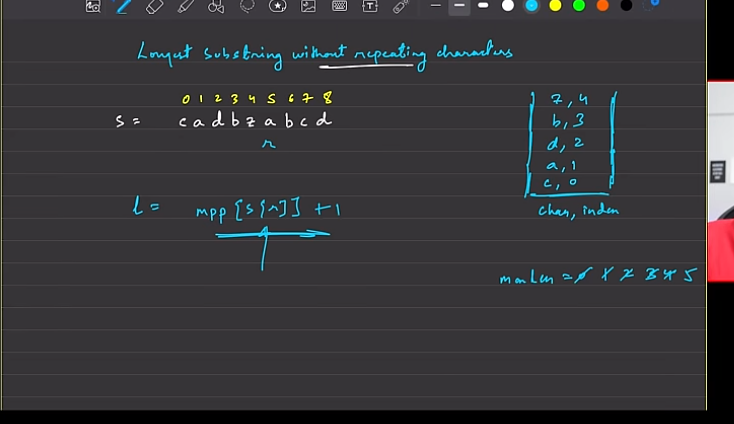 Longest substring without repeating characters
0 1 2 3 4 5 6 7 8
s = c a d b z a b c d
r
z, 4
b, 3
d, 2
a, 1
c, 0
char, index
l = mpp [s[r]] + 1
maxLen = 0 1 2 3 4 5